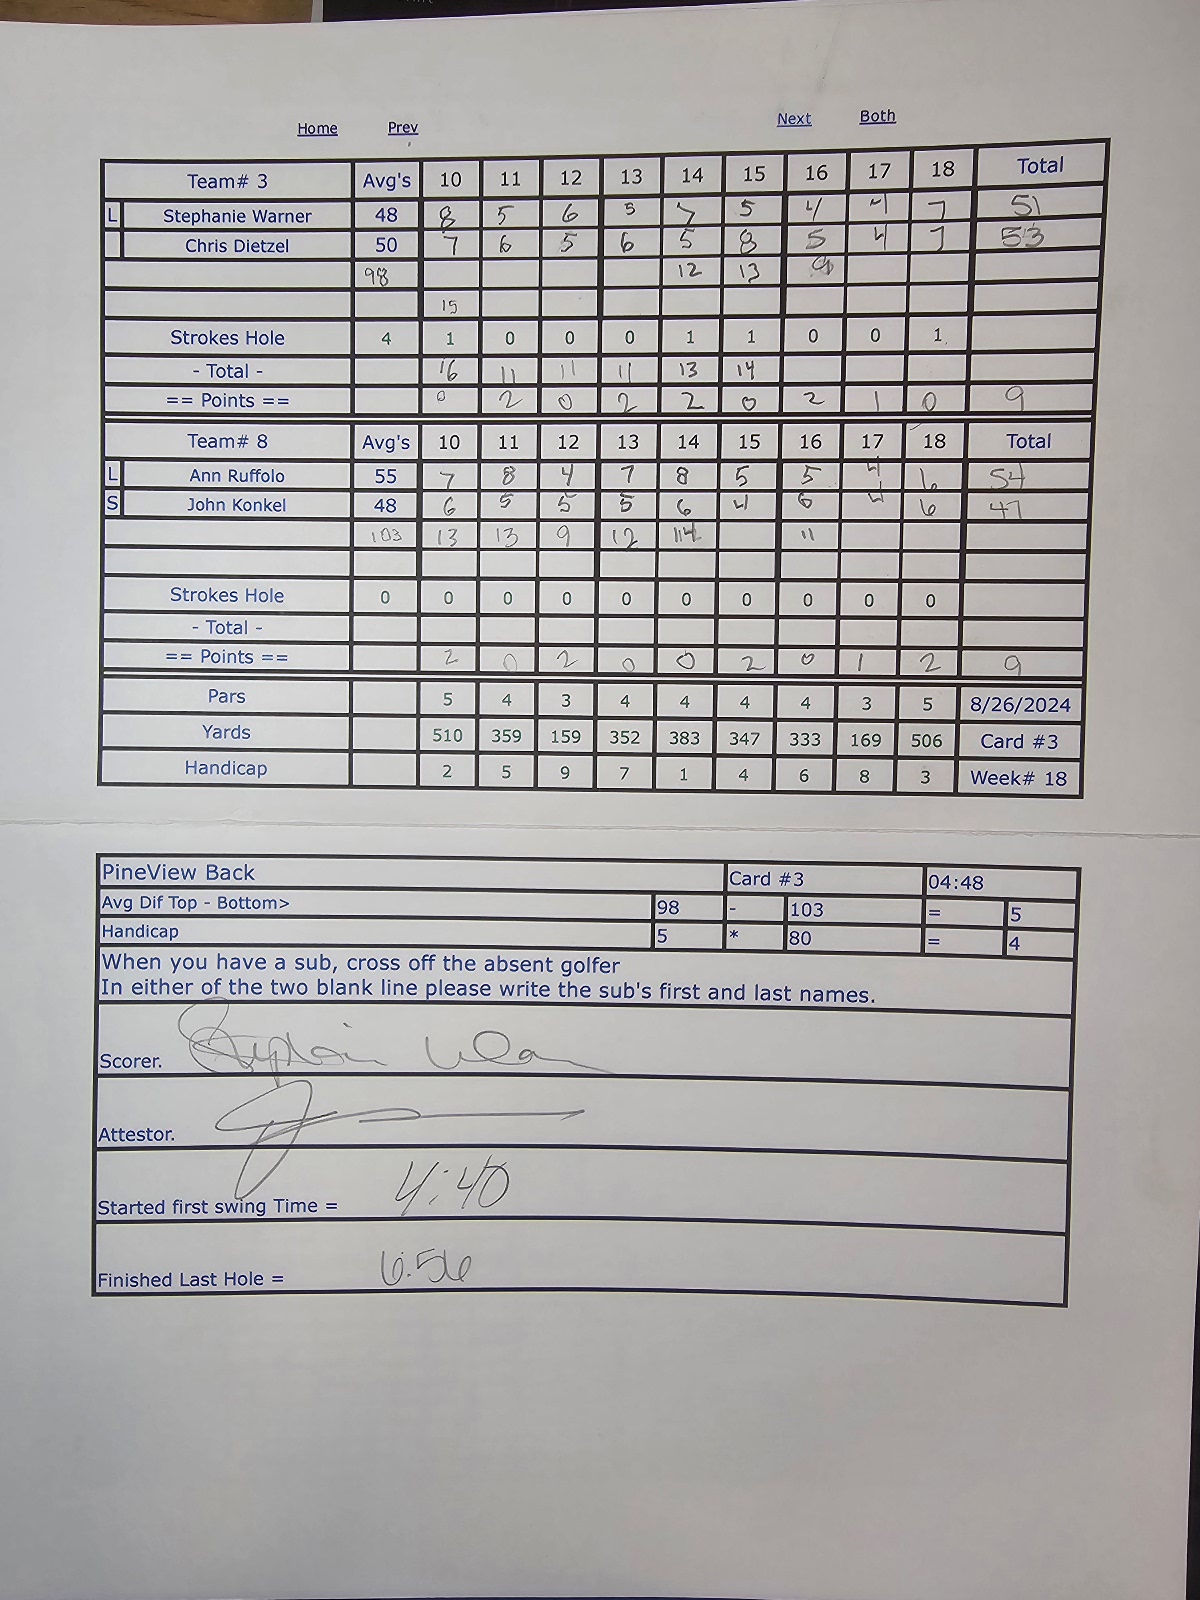 Home Prev Next Both
Team# 3 Avg's 10 11 12 13 14 15 16 17 18 Total
L Stephanie Warner 48 8 5 6 5 7 5 4 4 7 51
Chris Dietzel 50 7 6 5 6 5 8 5 4 7 53
98 12 13 9
15
Strokes Hole 4 1 0 0 0 1 1 0 0 1
- Total - 16 11 11 11 13 14
== Points == 0 2 0 2 2 0 2 1 0 9
Team# 8 Avg's 10 11 12 13 14 15 16 17 18 Total
L Ann Ruffolo 55 7 8 4 7 8 5 5 4 6 54
S John Konkel 48 6 5 5 5 6 4 6 4 6 47
103 13 13 9 12 14 11
Strokes Hole 0 0 0 0 0 0 0 0 0 0
- Total -
== Points == 2 0 2 0 0 2 0 1 2 9
Pars 5 4 3 4 4 4 4 3 5 8/26/2024
Yards 510 359 159 352 383 347 333 169 506 Card #3
Handicap 2 5 9 7 1 4 6 8 3 Week# 18
PineView Back Card #3 04:48
Avg Dif Top - Bottom> 98 - 103 = 5
Handicap 5 * 80 = 4
When you have a sub, cross off the absent golfer
In either of the two blank line please write the sub's first and last names.
Scorer.
Attestor.
Started first swing Time = 4:40
Finished Last Hole = 6:56